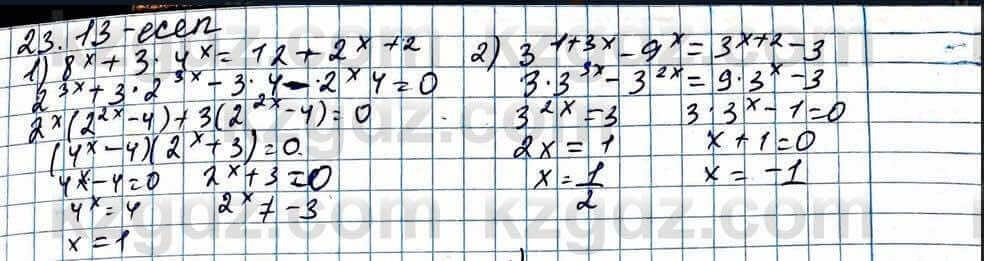 23. 13-есеп
1) 8^x + 3 · 4^x = 12 + 2^x+2
2^3x + 3 · 2^3x - 3 · 4 - · 2^x 4 = 0
2^x(2^2x - 4) + 3(2^2x - 4) = 0
(4^x - 4)(2^x + 3) = 0
4^x - 4 = 0   2^x + 3 = 0
4^x = 4   2^x ≠ -3
x = 1
2) 3^1+3x - 9^x = 3^x+2 - 3
3 · 3^3x - 3^2x = 9 · 3^x - 3
3^2x = 3   3 · 3^x - 1 = 0
2x = 1   x + 1 = 0
x = 1/2   x = -1
kzgdz.com